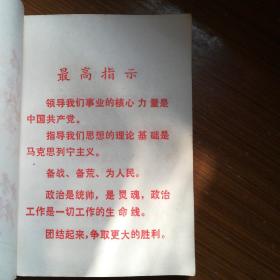 最高指示
领导我们事业的核心力量是
中国共产党。
指导我们思想的理论基础是
马克思列宁主义。
备战、备荒、为人民。
政治是统帅，是灵魂，政治
工作是一切工作的生命线。
团结起来，争取更大的胜利。